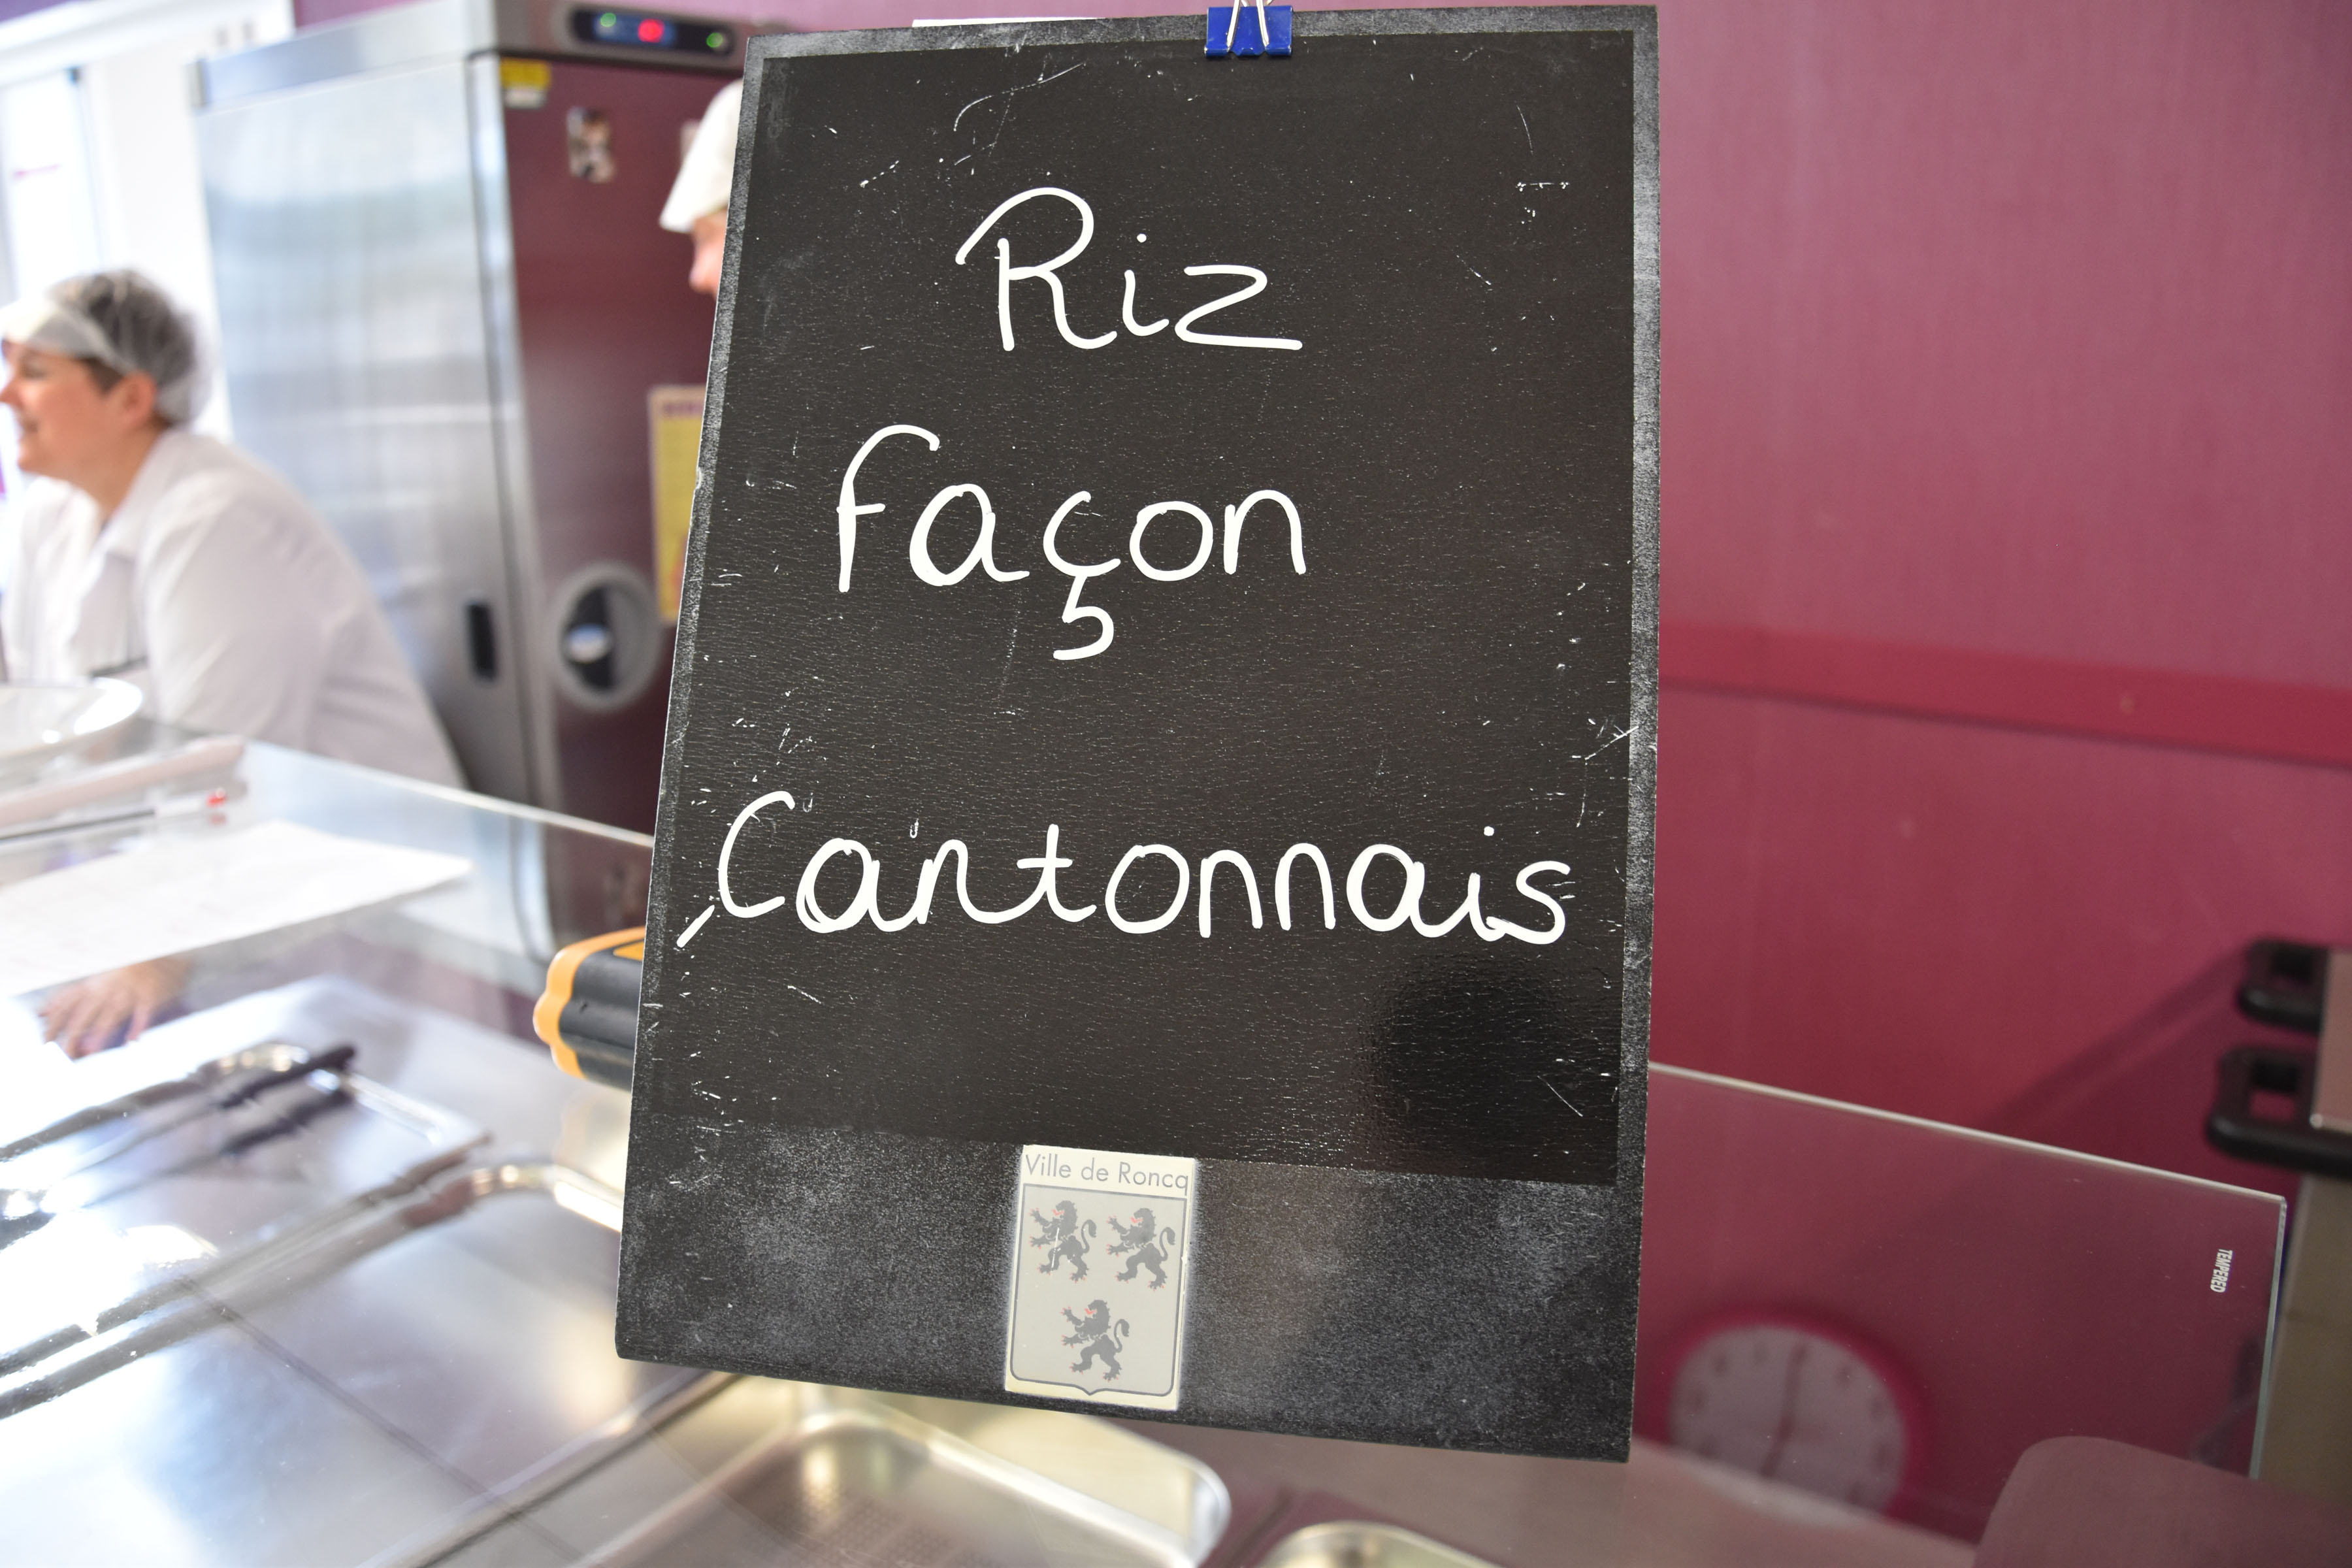 Riz
façon
Cantonnais
Ville de Roncq
TEMPERED